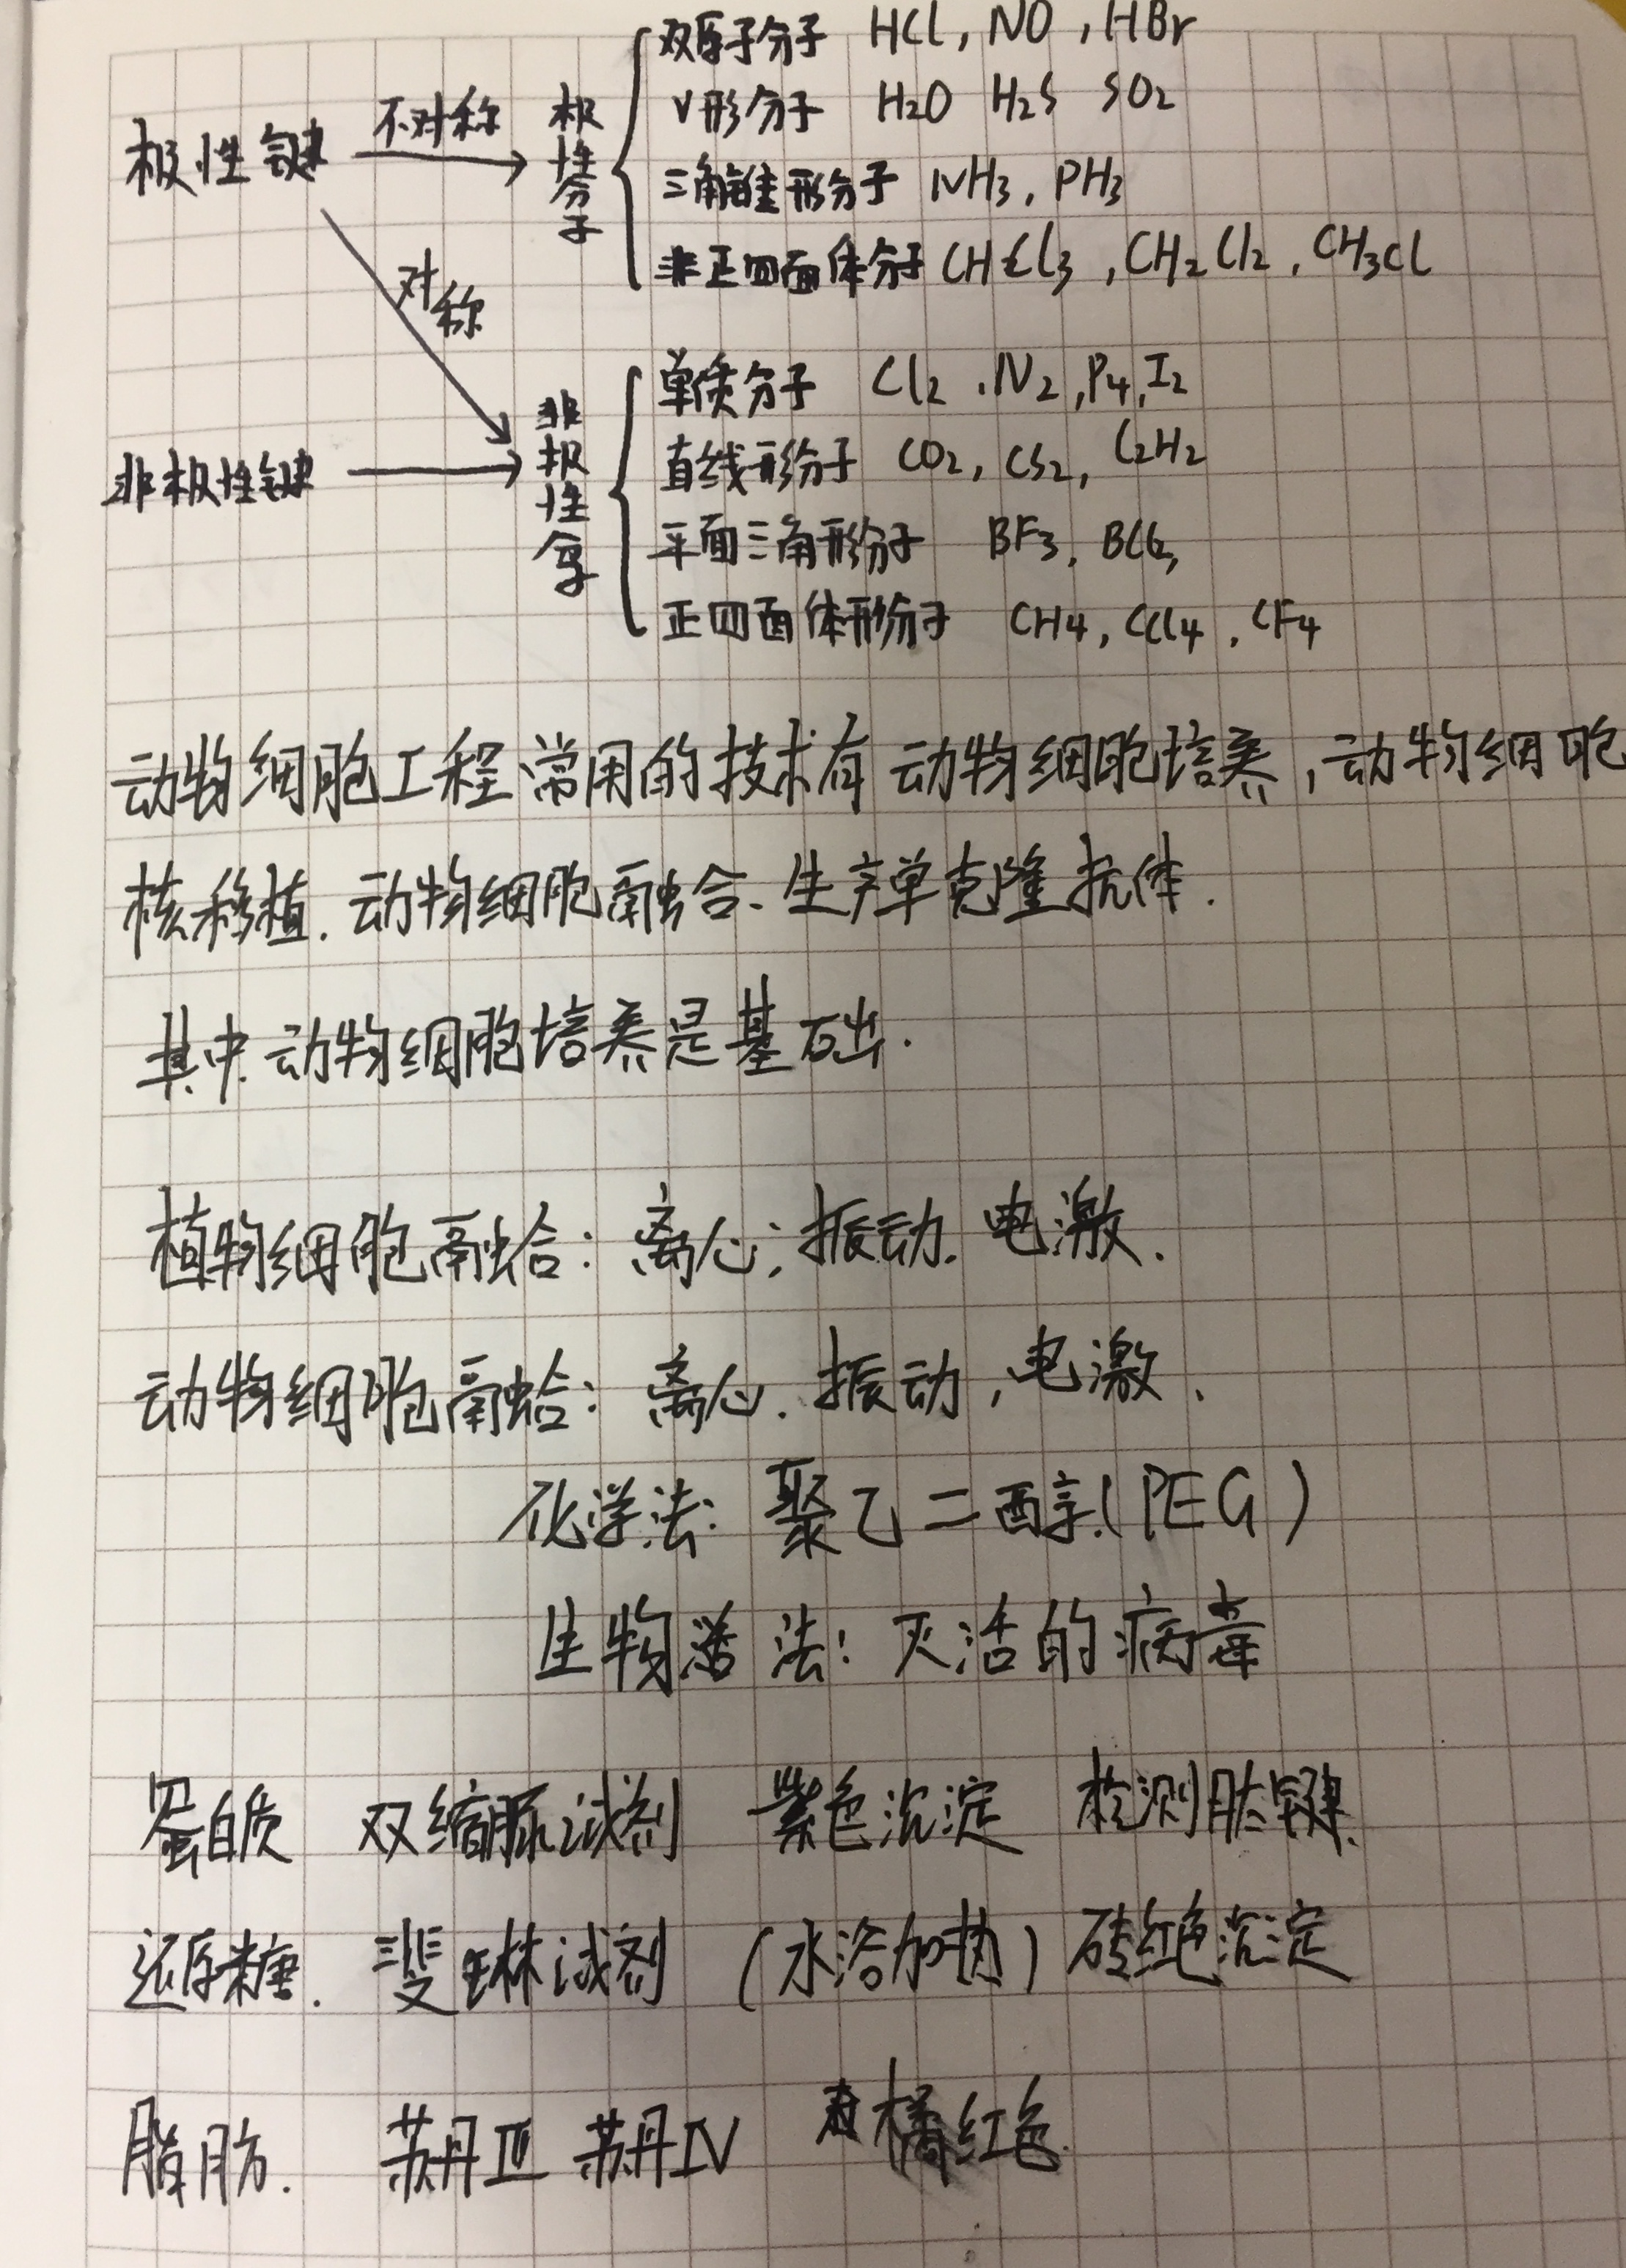 双原子分子 HCl, NO, HBr
极性键 不对称 极性分子 V形分子 H2O H2S SO2
三角锥形分子 NH3, PH3
非正四面体分子 CHCl3, CH2Cl2, CH3Cl
对称
单质分子 Cl2, N2, P4, I2
非极性键 非极性分子 直线形分子 CO2, CS2, C2H2
平面三角形分子 BF3, BCl3
正四面体形分子 CH4, CCl4, CF4
动物细胞工程常用的技术有 动物细胞培养, 动物细胞
核移植. 动物细胞融合、生产单克隆抗体.
其中. 动物细胞培养是基础.
植物细胞融合: 离心; 振动. 电激.
动物细胞融合: 离心. 振动, 电激、
化学法: 聚乙二醇(PEG)
生物 法: 灭活的病毒
蛋白质 双缩脲试剂 紫色沉淀 检测肽键.
还原糖. 斐林试剂 (水浴加热) 砖红色沉淀
脂肪. 苏丹III 苏丹IV 橘红色.